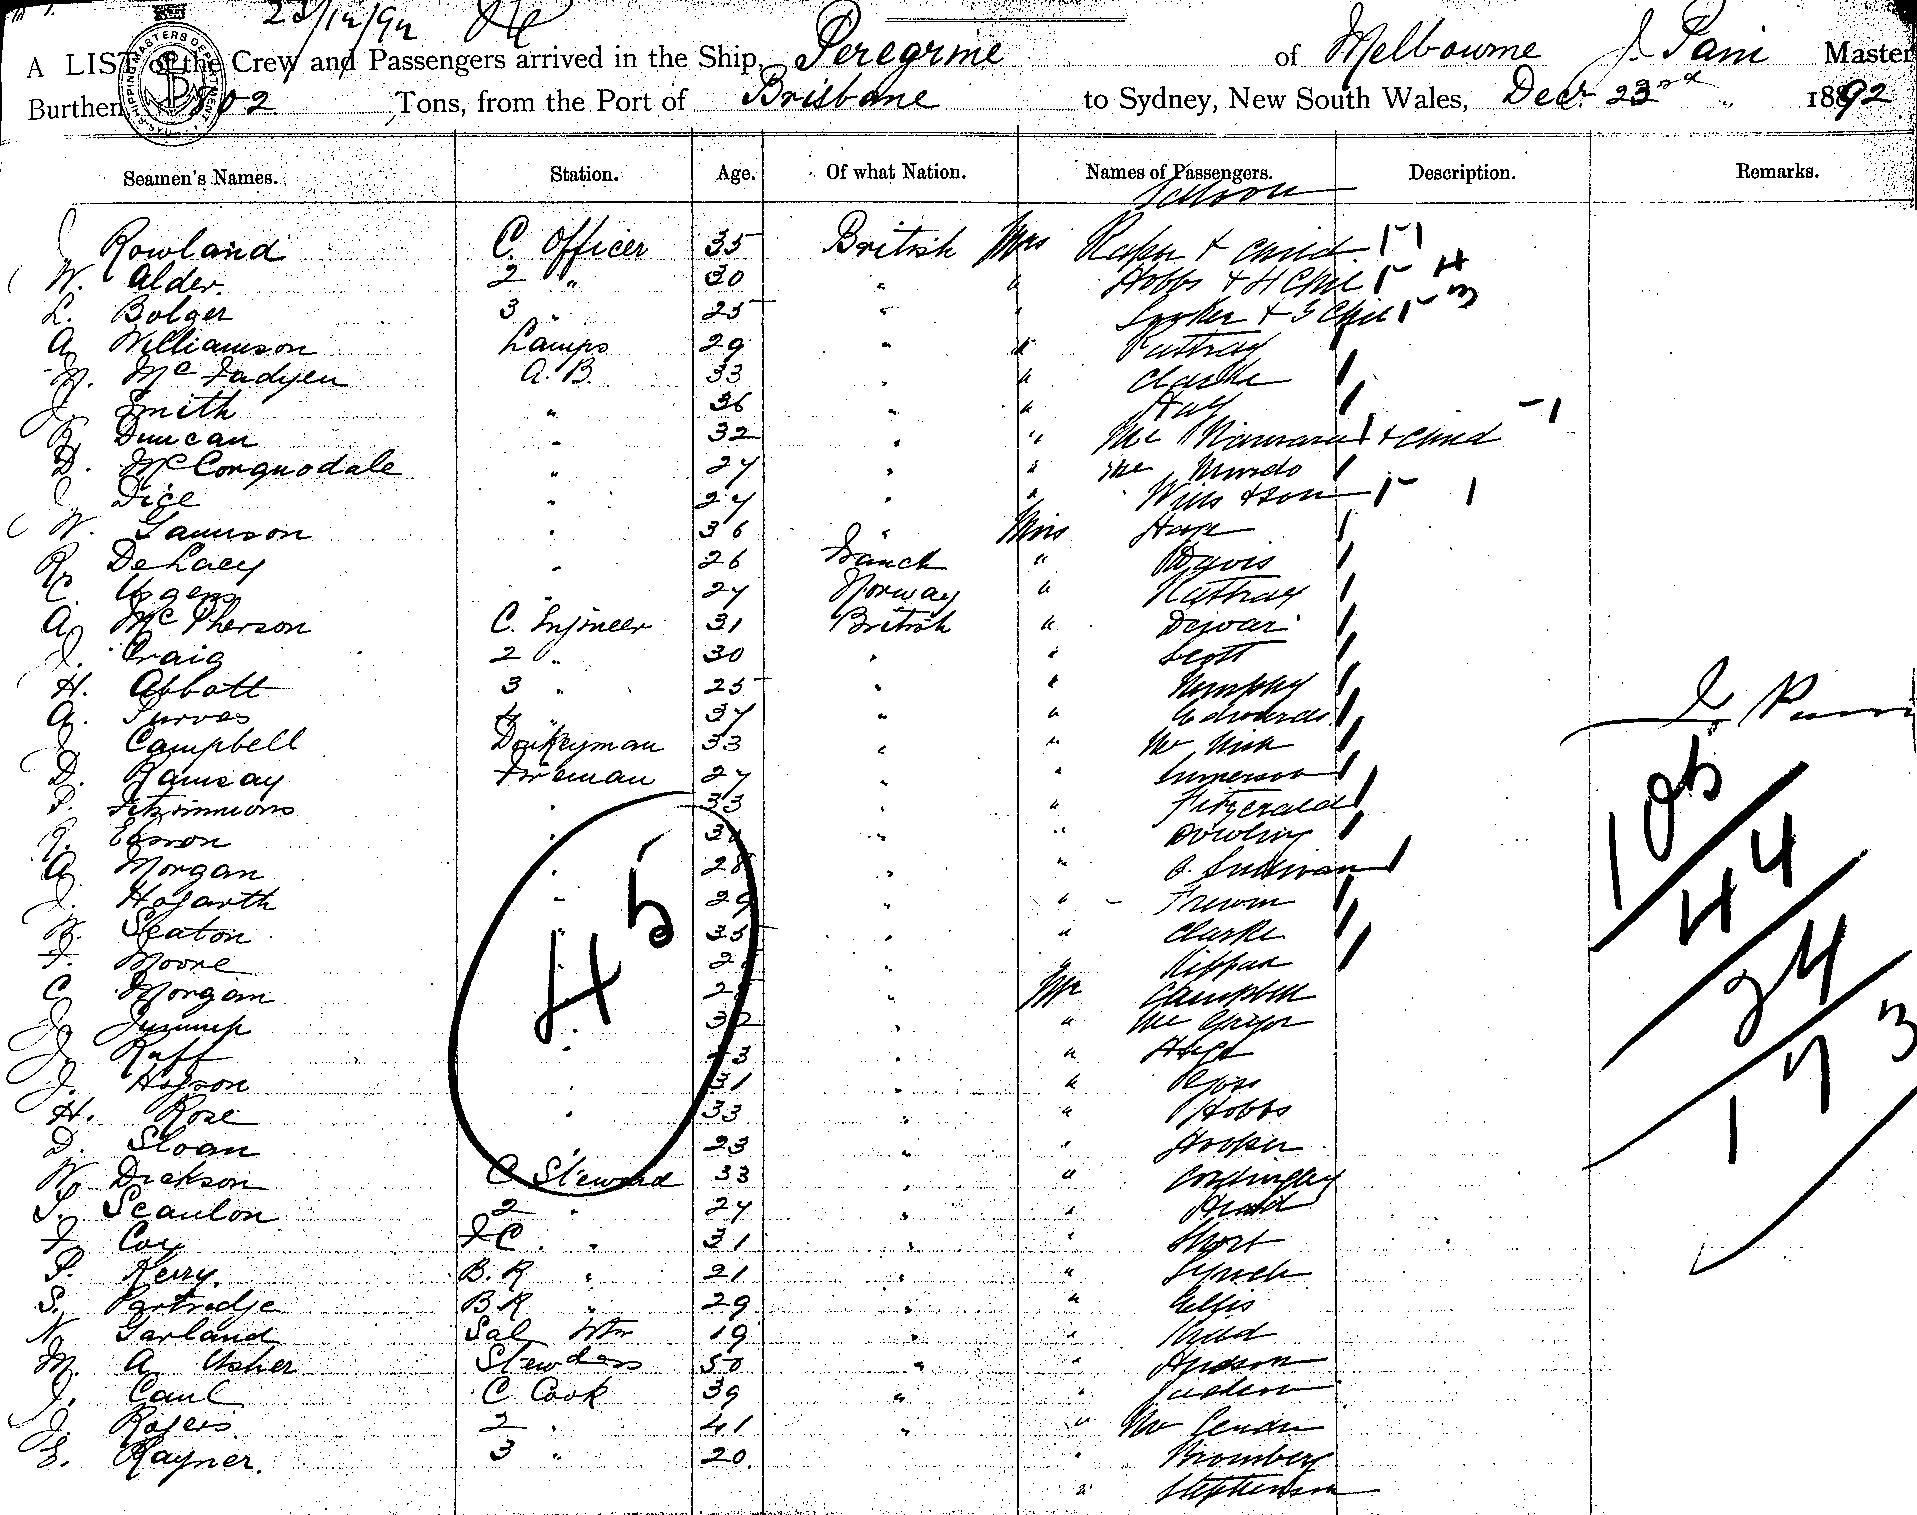 23/12/92
A LIST of the Crew and Passengers arrived in the Ship, Peregrine of Melbourne J. Pain Master
Burthen 802 Tons, from the Port of Brisbane to Sydney, New South Wales, Decr 23rd 1892
Seamen's Names. Station. Age. Of what Nation. Names of Passengers. Description. Remarks.
Saloon
J Rowland C. Officer 35 British Mrs & child 1-1
W. Alder. 2 " 30 " " Hobbs & 4 Chil 1-4
L. Bolger 3 " 25 " " & 3 Chil 1-3
A. Williamson Lamps 29 " " Rattray
N. McFadyen A.B. 33 " " Clarke
J. Smith " 36 " " Hay -1
R. Duncan " 32 " " Mc & child
D. McCorquodale " 27 " " Mc Murdo
J. Dice " 27 " " Wills & son 1- 1
W. Jamison " 36 " Miss
R. DeLacy " 26 French " Davis
C. " 27 Norway " Rattray
A. McPherson C. Engineer 31 British " Dewar
J. Craig 2 " 30 " " Scott
H. Abbott 3 " 25 " " Humphry
A. Purves 4 " 37 " " Edwards
J. Campbell Donkeyman 33 " "
D. Ramsay Fireman 27 " " Emmerson
P. Fitzsimmons " 33 " " Fitzgerald
R. " " " Dowling
A. Morgan " 28 " " O. Sullivan
J. Hogarth " 29 " "
W. Seaton " 35 " " Clarke
F. Moore " " "
C. Morgan " " Mr Campbell
J. " 32 " " Mc Gregor
J. Raff " " "
J. Hogson " 31 " " Ross
H. Rose " 33 " " Hobbs
D. Sloan " 23 " " Hooker
W. Dickson C Steward 33 " " Cordingley
P. Scanlon 2 " 27 " " Head
F. Coy F C. " 31 " " Short
P. Kerry. B.R " 21 " " Lynch
S. Partridge B.R " 29 " " Ellis
N. Garland Sal Wtr 19 " " Kidd
M. A Usher Stewdess 50 " " Hudson
J. Caul C Cook 39 " " Judson
J. Rogers 2 " 41 " "
E. Rayner. 3 " 20. " Bromberg
" Stephenson
45
105
44
24
173